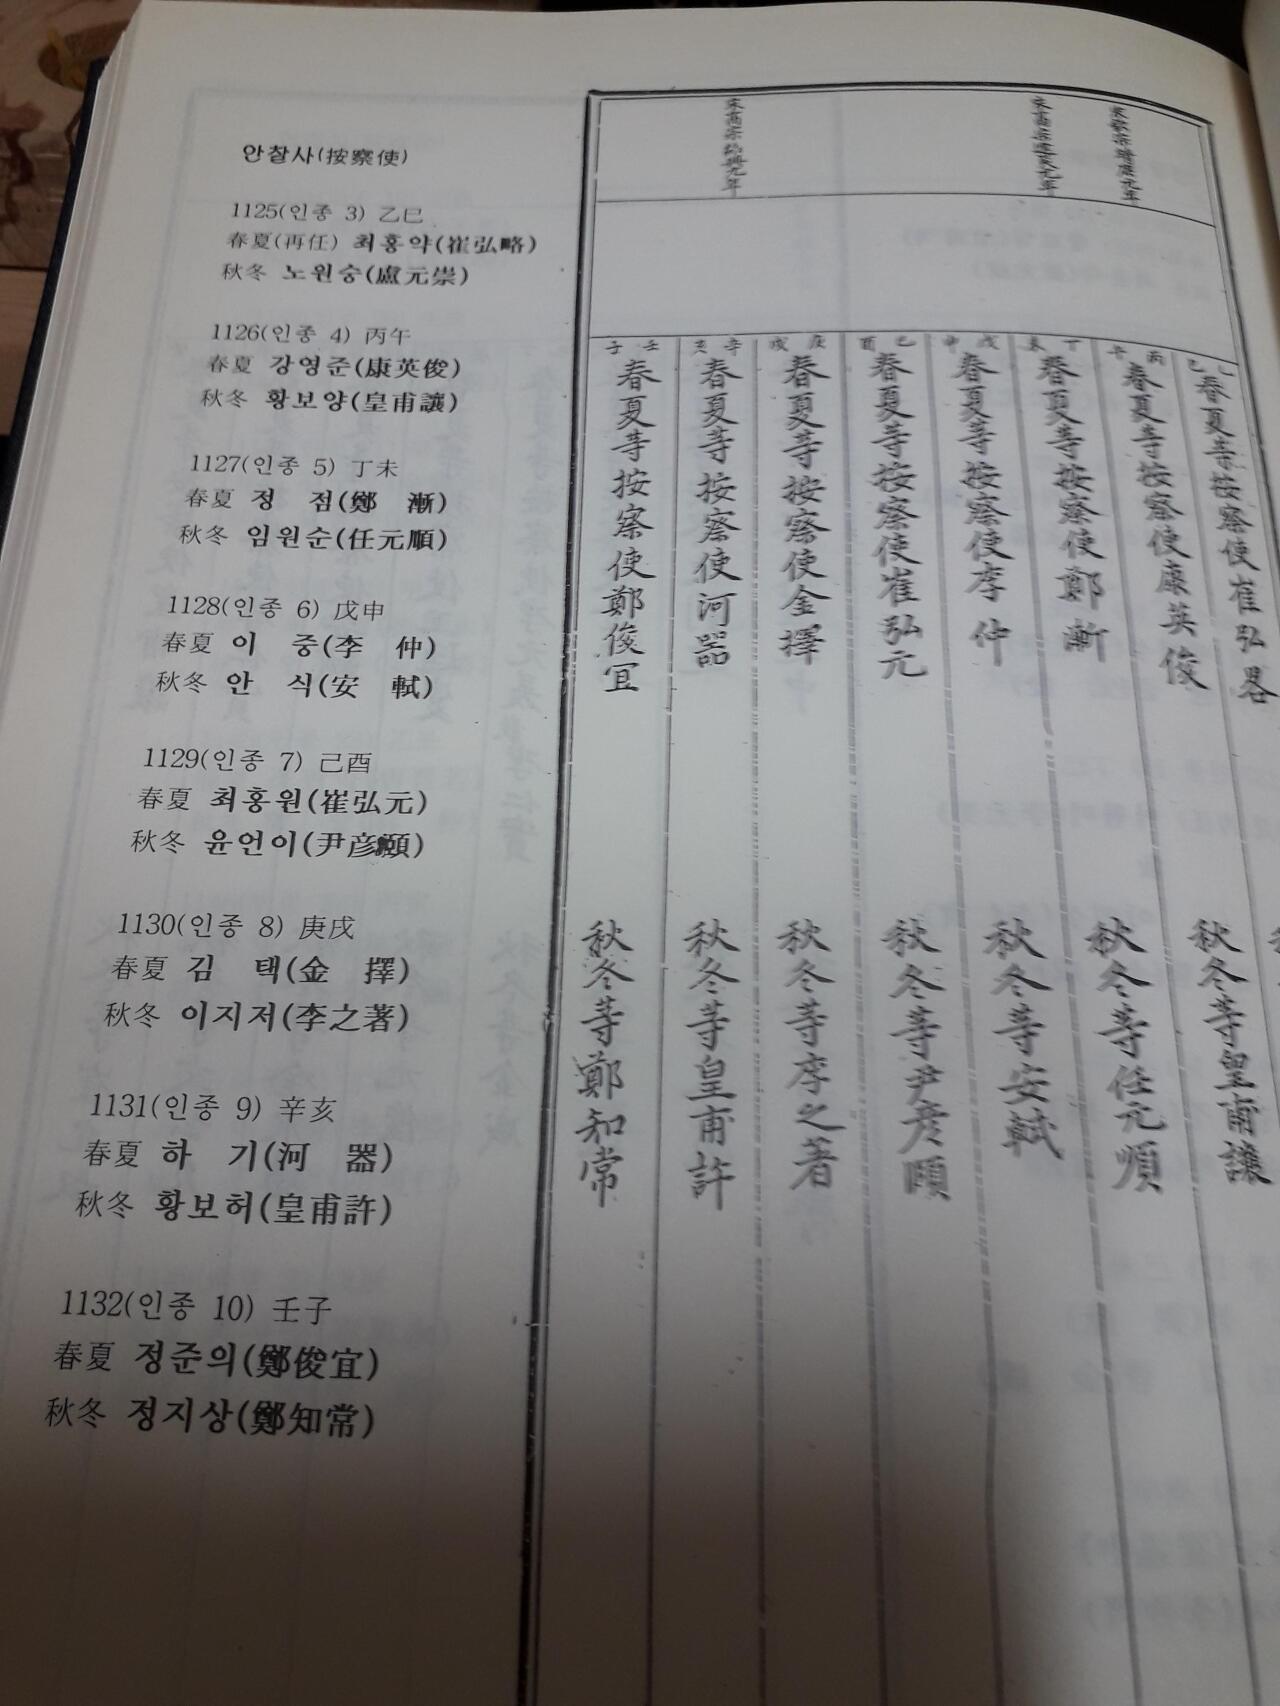 안찰사(按察使)
1125(인종 3) 乙巳
春夏(再任) 최홍약(崔弘略)
秋冬 노원숭(盧元崇)
1126(인종 4) 丙午
春夏 강영준(康英俊)
秋冬 황보양(皇甫讓)
1127(인종 5) 丁未
春夏 정 점(鄭 漸)
秋冬 임원순(任元順)
1128(인종 6) 戊申
春夏 이 중(李 仲)
秋冬 안 식(安 軾)
1129(인종 7) 己酉
春夏 최홍원(崔弘元)
秋冬 윤언이(尹彦頤)
1130(인종 8) 庚戌
春夏 김 택(金 擇)
秋冬 이지저(李之著)
1131(인종 9) 辛亥
春夏 하 기(河 器)
秋冬 황보허(皇甫許)
1132(인종 10) 壬子
春夏 정준의(鄭俊宜)
秋冬 정지상(鄭知常)
宋欽宗靖康元年
宋高宗建炎元年
宋高宗紹興元年
乙巳
春夏等按察使崔弘畧
丙午
春夏等按察使康英俊
秋冬等皇甫讓
丁未
春夏等按察使鄭漸
秋冬等任元順
戊申
春夏等按察使李仲
秋冬等安軾
己酉
春夏等按察使崔弘元
秋冬等尹彦頤
庚戌
春夏等按察使金擇
秋冬等李之著
辛亥
春夏等按察使河器
秋冬等皇甫許
壬子
春夏等按察使鄭俊宜
秋冬等鄭知常